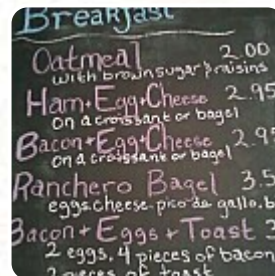 Breakfast
Oatmeal 2.00
with brown sugar & raisins
Ham + Egg + Cheese 2.95
on a croissant or bagel
Bacon + Egg + Cheese 2.9
on a croissant or bagel
Ranchero Bagel 3.5
eggs.cheese.pico de gallo.b
Bacon + Eggs + Toast 3
2 eggs, 4 pieces of bacon
2 pieces of toast